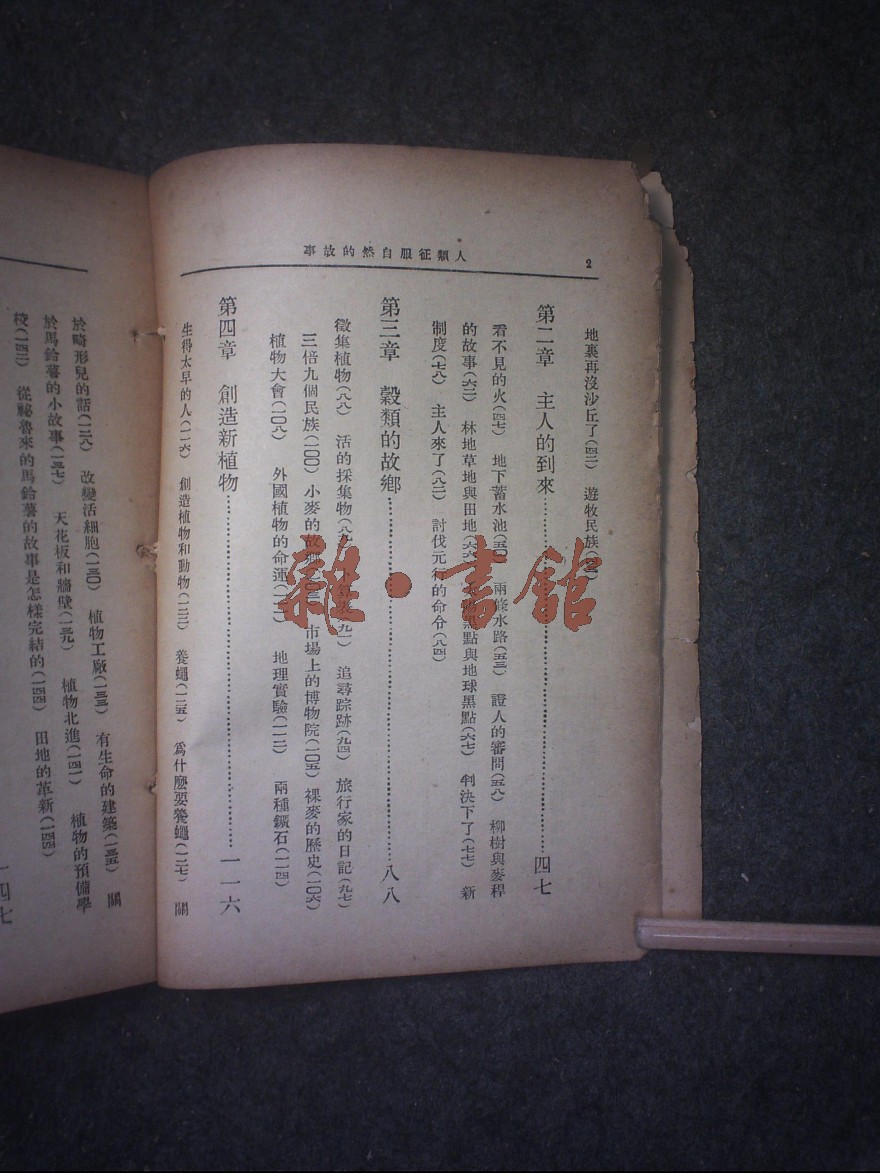 人類征服自然的故事
2
地裏再沒沙丘了(四三) 遊牧民族
第二章 主人的到來 四七
看不見的火(四七) 地下蓄水池(五〇) 兩條水路(五三) 證人的審問(五八) 柳樹與麥稈
的故事(六三) 林地草地與田地 黑點與地球黑點(六七) 判決下了(七七) 新
制度(七八) 主人來了(八二) 討伐元行的命令(八四)
第三章 穀類的故鄉 八八
徵集植物(八八) 活的採集物 追尋踪跡(九四) 旅行家的日記(九七)
三倍九個民族(一〇〇) 小麥的故鄉 市場上的博物院(一〇五) 裸麥的歷史(一〇六)
植物大會(一〇八) 外國植物的命運 地理實驗(一一二) 兩種鑛石(一一四)
第四章 創造新植物 一一六
生得太早的人(一一六) 創造植物和動物(一二三) 養蠅(一二五) 爲什麽要養蠅(一二七) 關
於畸形兒的話(一二八) 改變活細胞(一三〇) 植物工廠(一三三) 有生命的建築(一三五) 關
於馬鈴薯的小故事(一三七) 天花板和牆壁(一三九) 植物北進(一四一) 植物的預備學
校(一四三) 從祕魯來的馬鈴薯的故事是怎樣完結的(一四四) 田地的革新(一四四)
一四七
雜·書館